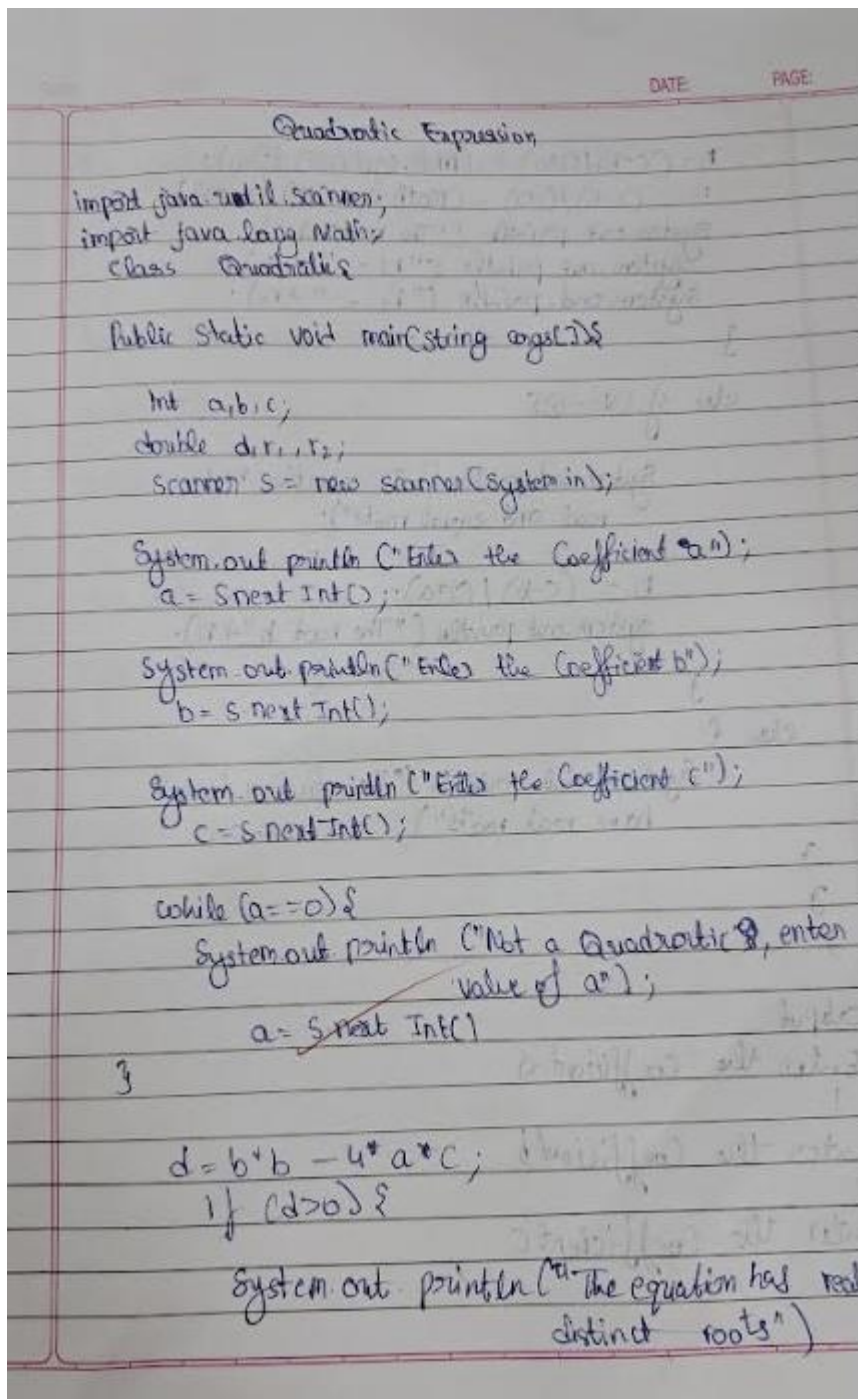 DATE: PAGE:
Quadratic Expression
import java.util.scanner;
import java.lang Math;
class Quadratic{
Public static void main(string args[]){
Int a,b,c;
double d,r1,r2;
scanner s = new scanner(System.in);
System.out println ("Enter the Coefficient a");
a = S next Int();
System.out.println("Enter the Coefficient b");
b = s next Int();
System out println ("Enter the Coefficient c");
c = s next Int();
while (a==0){
System out println ("Not a Quadratic, enter
value of a");
a = S next Int()
}
d = b*b - 4* a*c;
if (d>0) {
System out println ("The equation has real
distinct roots")